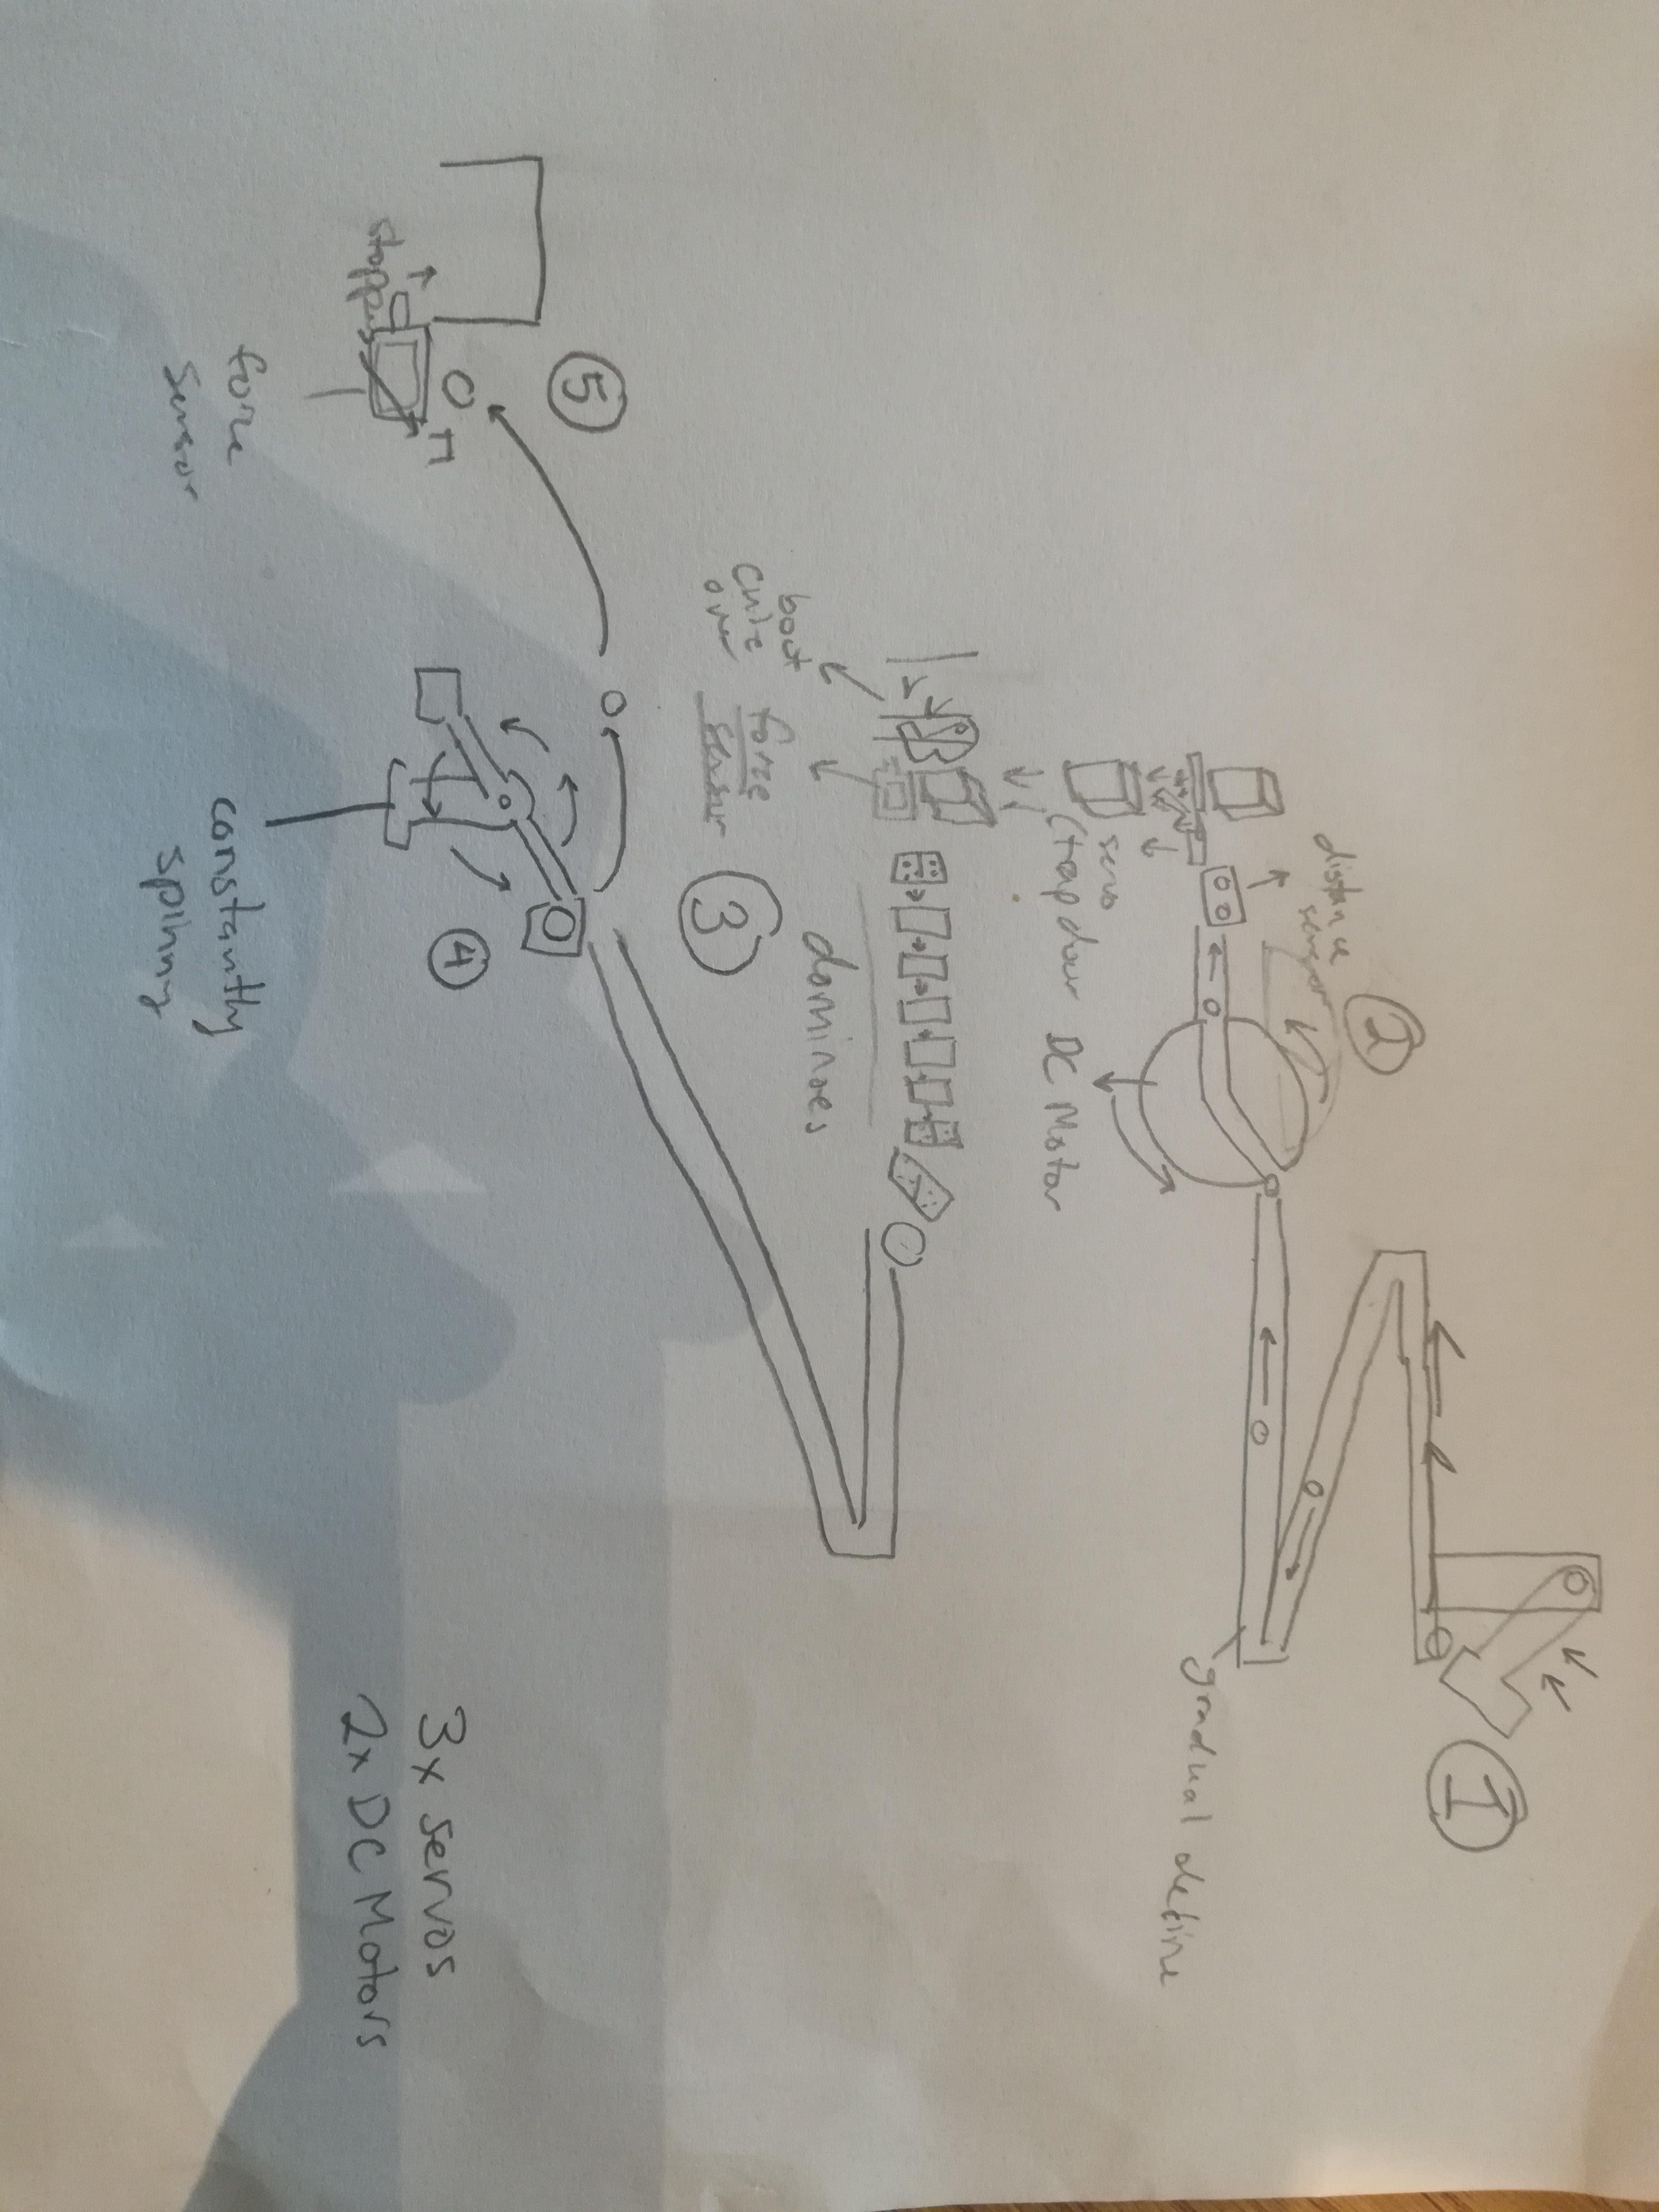 1
gradual decline
2
distance
sensor
servo
(trap door
DC Motor
3
dominoes
force
sensor
boot
cube
over
4
constantly
spinning
5
stopp
force
sensor
3x servos
2x DC Motors